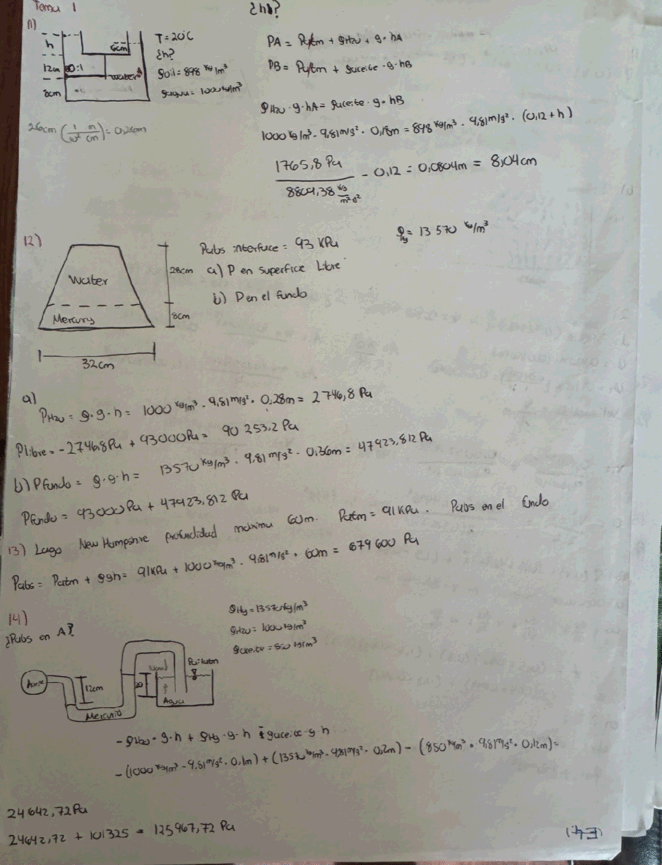 Tema 1
¿h?
11)
h
6cm
12cm
Oil
water
8cm
T = 20°C
¿h?
ρoil = 898 kg/m³
ρagua = 1000 kg/m³
PA = Patm + ρH2O · g · hA
PB = Patm + ρaceite · g · hB
ρH2O · g · hA = ρaceite · g · hB
1000 kg/m³ · 9,81 m/s² · 0,18m = 898 kg/m³ · 9,81 m/s² · (0,12 + h)
1765,8 Pa
- 0,12 = 0,0804m = 8,04cm
8809,38 kg/m²s²
26cm (1 m / 10² cm) = 0,26m
12)
Water
Mercury
28cm
8cm
32cm
Pabs interface = 93 KPa
a) P en superfice Libre
b) P en el fundo
ρHg = 13 570 kg/m³
a)
PH2O = ρ · g · h = 1000 kg/m³ · 9,81 m/s² · 0,28m = 2746,8 Pa
Plibre = -2746,8Pa + 93000Pa = 90 253.2 Pa
b) Pfundo = ρ · g · h = 13570 kg/m³ · 9,81 m/s² · 0,36m = 47923,812 Pa
Pfundo = 93000 Pa + 47923,812 Pa
13) Lago New Hampshire profundidad maxima 60m. Patm = 91KPa. Pabs en el fundo
Pabs = Patm + ρgh = 91 KPa + 1000 kg/m³ · 9,81 m/s² · 60m = 679 600 Pa
14)
¿Pabs en A?
12cm
Mercurio
Agua
ρHg = 13570 kg/m³
ρH2O = 1000 kg/m³
ρaceite = 850 kg/m³
- ρH2O · g · h + ρHg · g · h ρaceite · g · h
- (1000 kg/m³ · 9,81 m/s² · 0,1m) + (13570 kg/m³ · 9,81 m/s² · 0,2m) - (850 kg/m³ · 9,81 m/s² · 0,12m) =
24642,72 Pa
24642,72 + 101325 = 125967,72 Pa